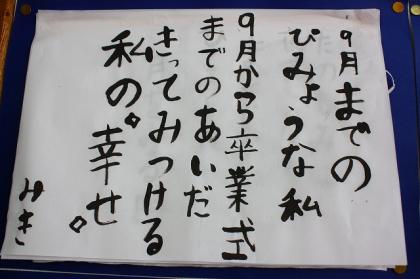 9月までの
びみょうな私
9月から卒業式
までのあいだ
きってみつける
私の〝幸せ〟
みき